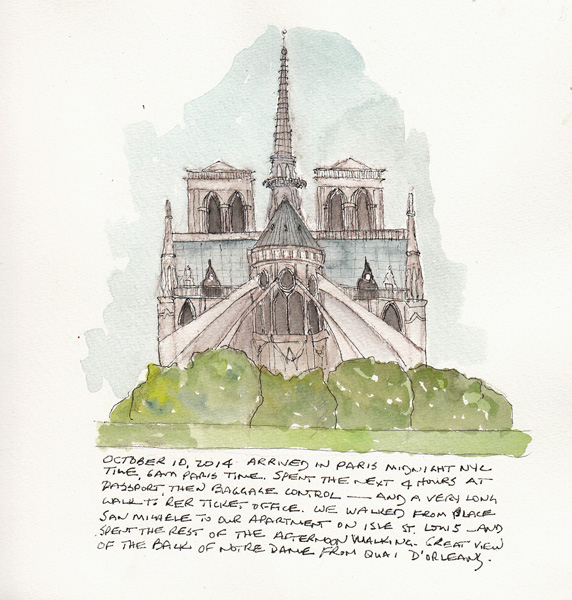 OCTOBER 10, 2014 ARRIVED IN PARIS MIDNIGHT NYC
TIME, 6AM PARIS TIME. SPENT THE NEXT 4 HOURS AT
PASSPORT, THEN BAGGAGE CONTROL — AND A VERY LONG
WALK TO RER TICKET OFFICE. WE WALKED FROM PLACE
SAN MICHELE TO OUR APARTMENT ON ISLE ST. LOUIS AND
SPENT THE REST OF THE AFTERNOON WALKING. GREAT VIEW
OF THE BACK OF NOTRE DAME FROM QUAI D'ORLEANS.